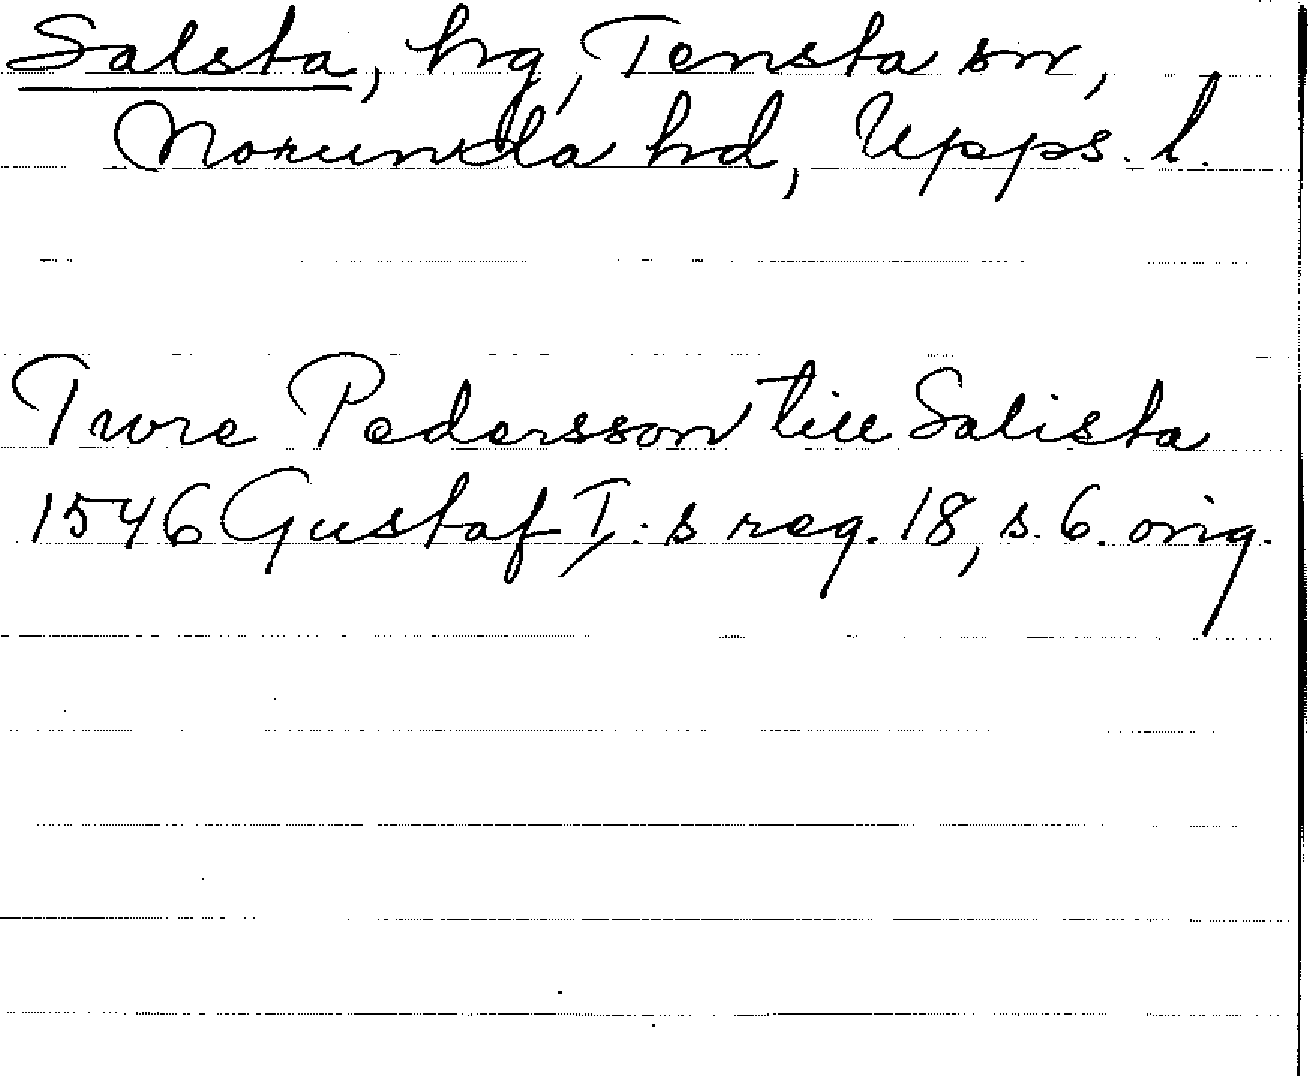 Salsta, hg, Tensta sn,
Norunda hd, Upps. l.
Twre Pedersson till Salista
1546 Gustaf I:s reg. 18, s. 6. orig.